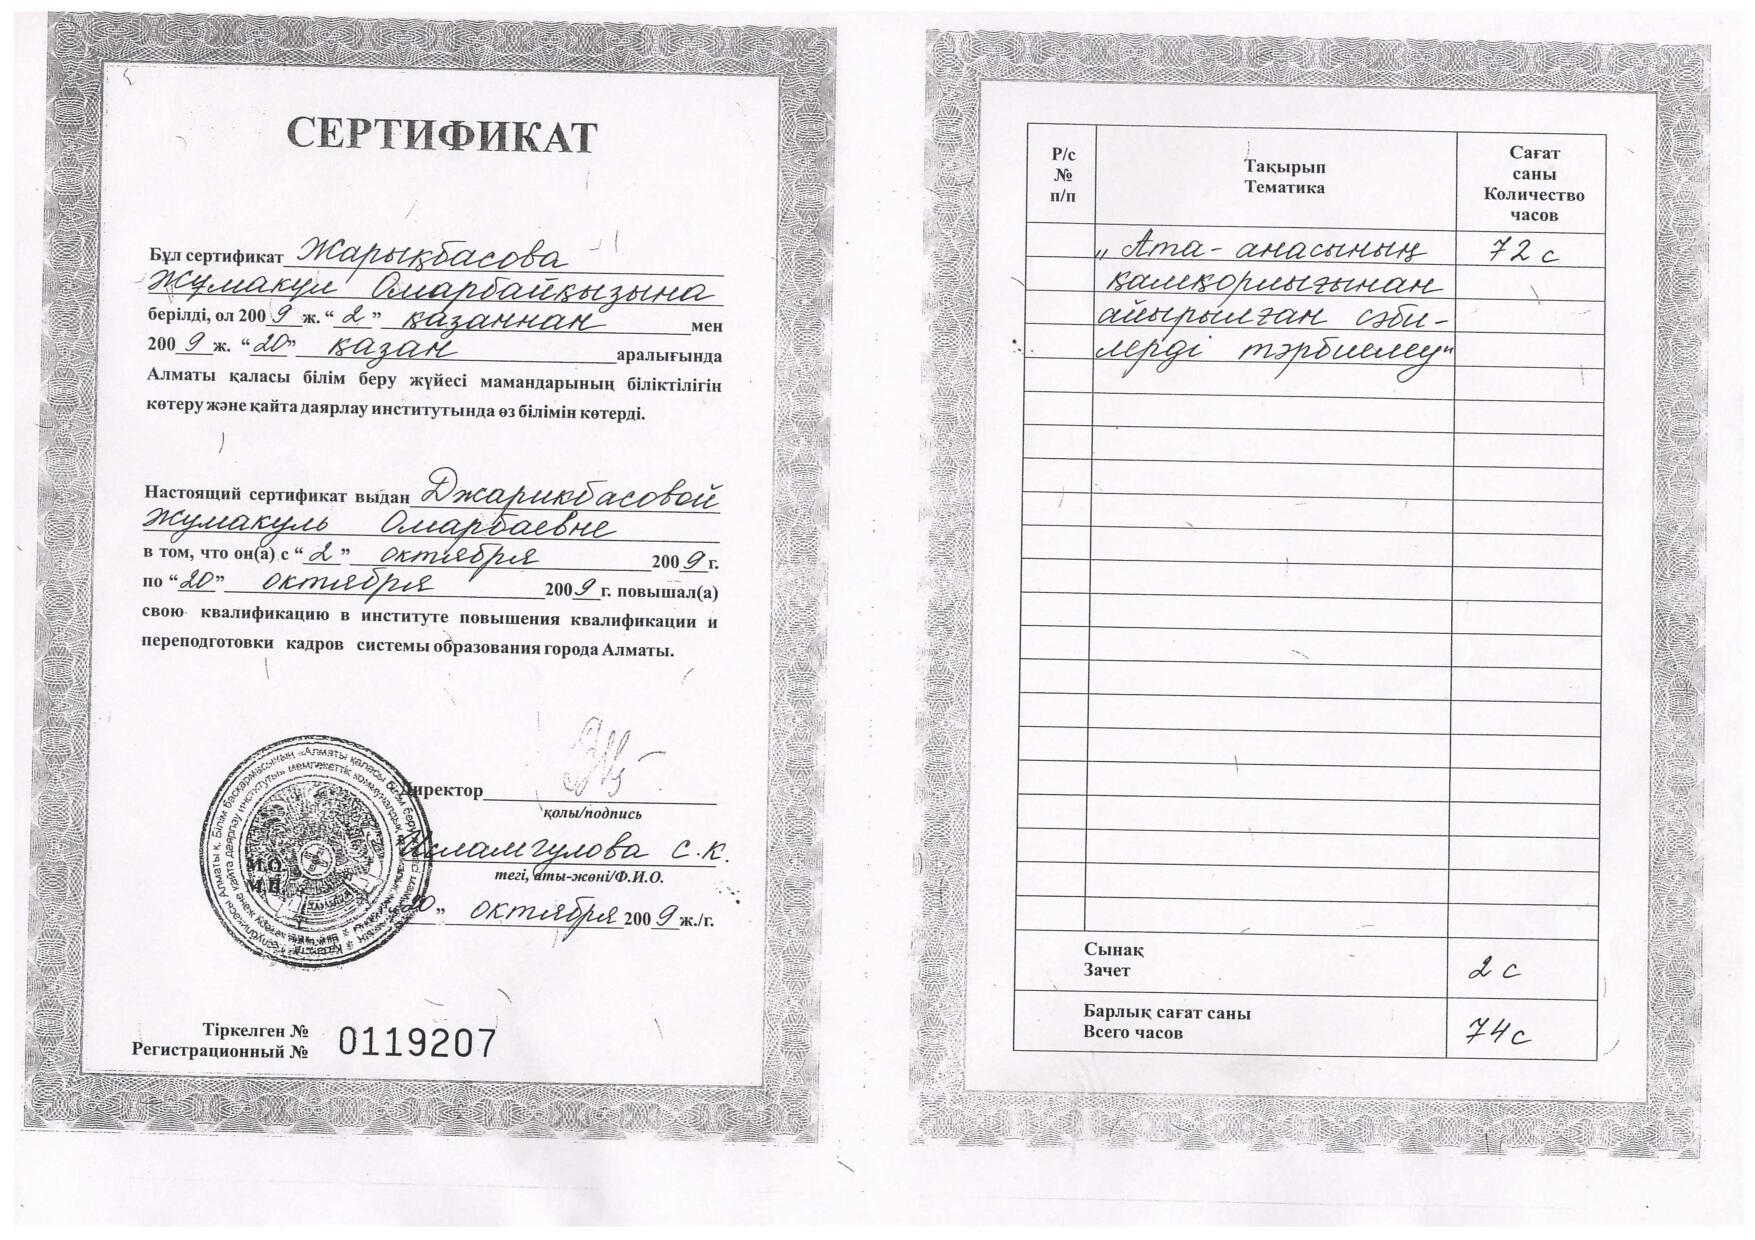 СЕРТИФИКАТ
Бұл сертификат Жарықбасова
Жумакул Омарбайқызына
берілді, ол 2009 ж. “2” қазаннан мен
2009 ж. “20” қазан аралығында
Алматы қаласы білім беру жүйесі мамандарының біліктілігін
көтеру және қайта даярлау институтында өз білімін көтерді.
Настоящий сертификат выдан Джарикбасовой
Жумакуль Омарбаевне
в том, что он(а) с “2” октября 2009 г.
по “20” октября 2009 г. повышал(а)
свою квалификацию в институте повышения квалификации и
переподготовки кадров системы образования города Алматы.
Директор
қолы/подпись
Исламгулова С.К.
тегі, аты-жөні/Ф.И.О.
М.О.
М.П.
“20” октября 2009 ж./г.
Тіркелген №
Регистрационный № 0119207
Р/с
№
п/п
Тақырып
Тематика
Сағат
саны
Количество
часов
„Ата-анасының 72 с
қамқорлығынан
айырылған сәби-
лерді тәрбиелеу“
Сынақ
Зачет 2 с
Барлық сағат саны
Всего часов 74 с